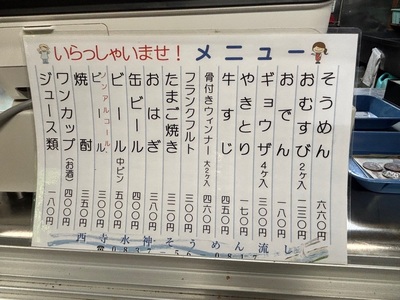 いらっしゃいませ! メニュー
そうめん 六六〇円
おむすび 2ヶ入 二三〇円
おでん 一八〇円
ギョウザ 4ヶ入 三〇〇円
やきとり 一七〇円
牛すじ 四五〇円
骨付きウィンナー 大2ヶ入 四六〇円
フランクフルト 三〇〇円
たまご焼き 三二〇円
おはぎ 三八〇円
缶ビール 四〇〇円
ビール 中ビン 五〇〇円
ノンアルコールビール 三〇〇円
焼酎 三五〇円
ワンカップ(お酒) 四〇〇円
ジュース類 一八〇円
西寺水神そうめん流し